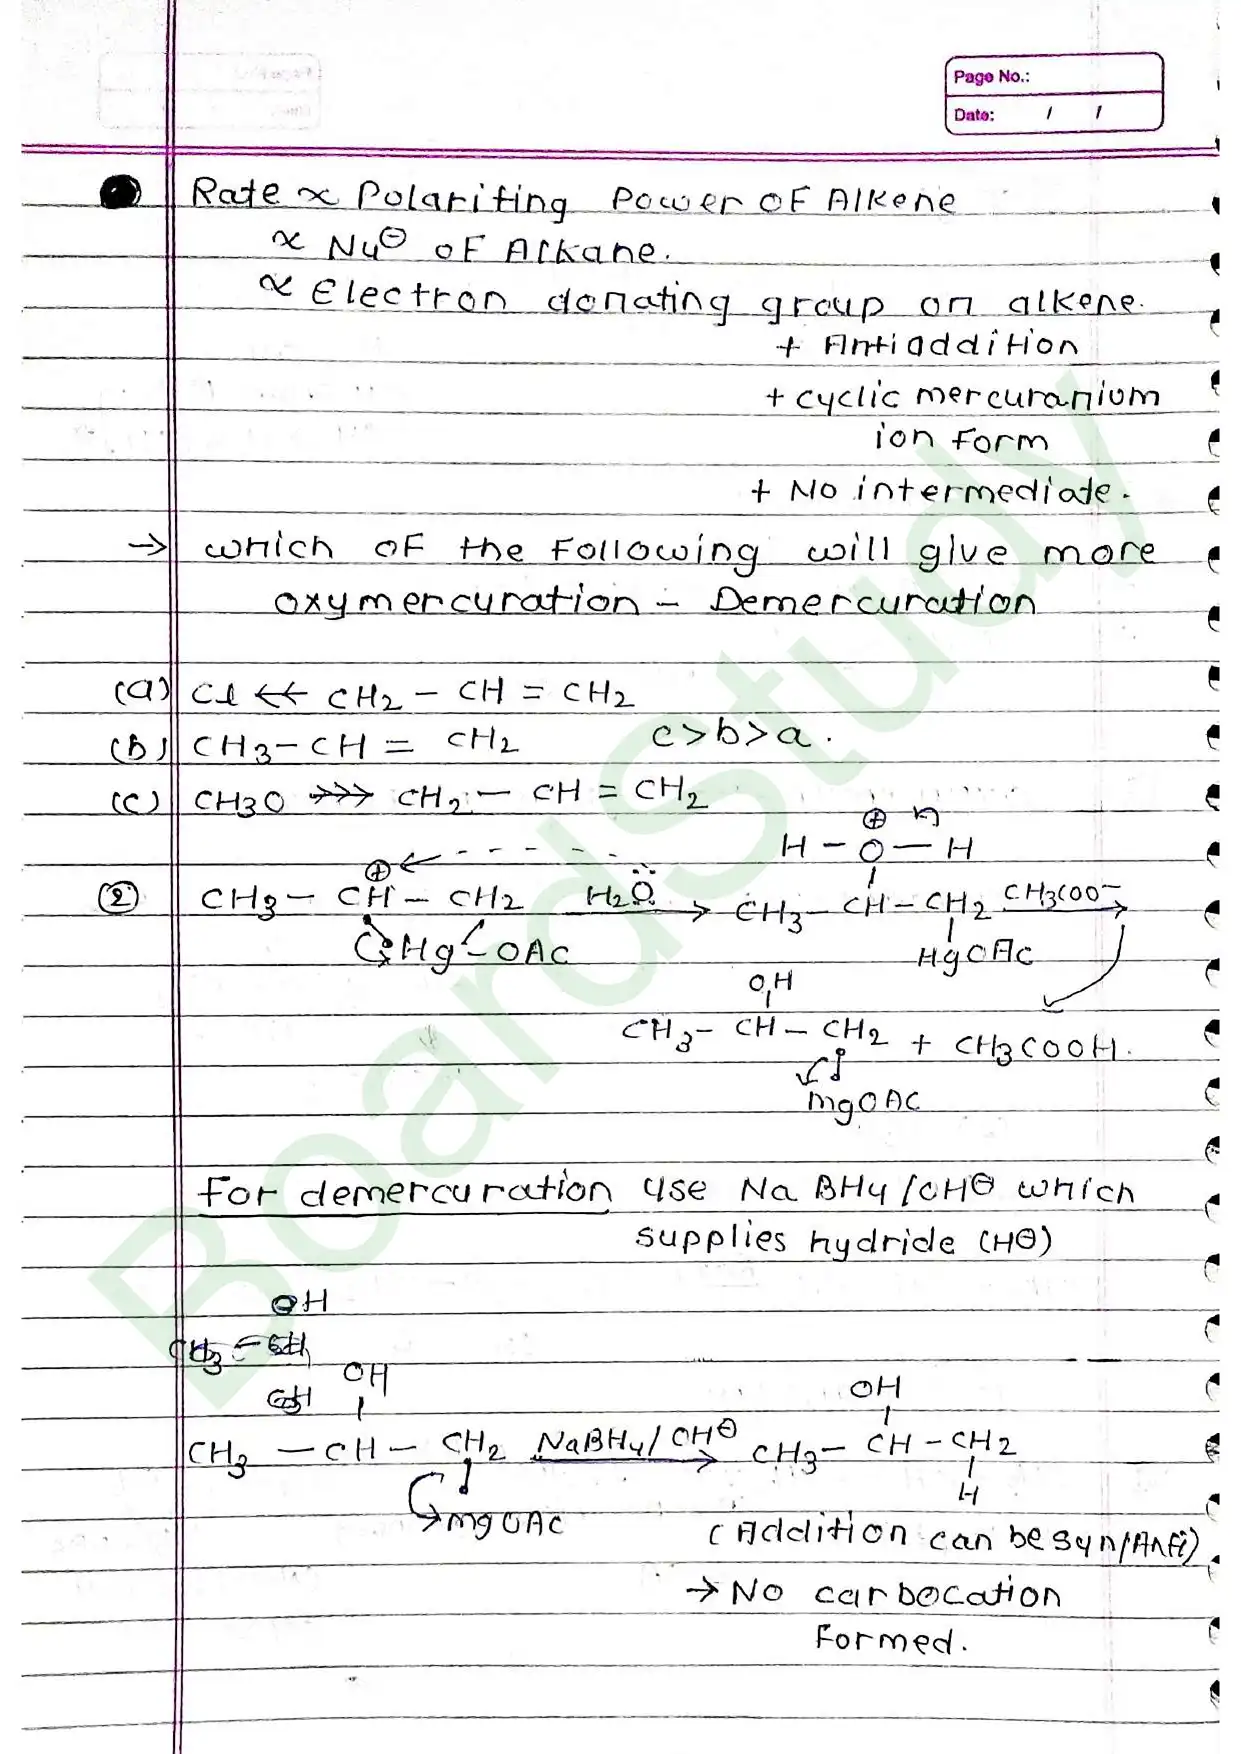 Page No.:
Date: / /
Rate ∝ Polariting Power OF Alkene
∝ Nu⊖ OF Alkane.
∝ Electron donating group on alkene.
+ Antiaddition
+ cyclic mercuranium
ion Form
+ No intermediate.
→ which OF the Following will give more
oxymercuration – Demercuration
(a) Cl ↞ CH2 – CH = CH2
(b) CH3 – CH = CH2 c > b > a.
(C) CH3O →>>> CH2 – CH = CH2
⊕
H – O – H
⊕
② CH3 – CH – CH2 H2O → CH3 – CH – CH2 CH3COO– →
Hg – OAC HgOAC
OH
CH3 – CH – CH2 + CH3COOH.
mgOAC
For demercuration use NaBH4/OH⊖ which
supplies hydride (H⊖)
OH
CH3 –
OH
OH
CH3 – CH – CH2 NaBH4/OH⊖ → CH3 – CH – CH2
H
mgOAC (Addition can be syn/Anti)
→ No carbocation
Formed.
BoardStudy